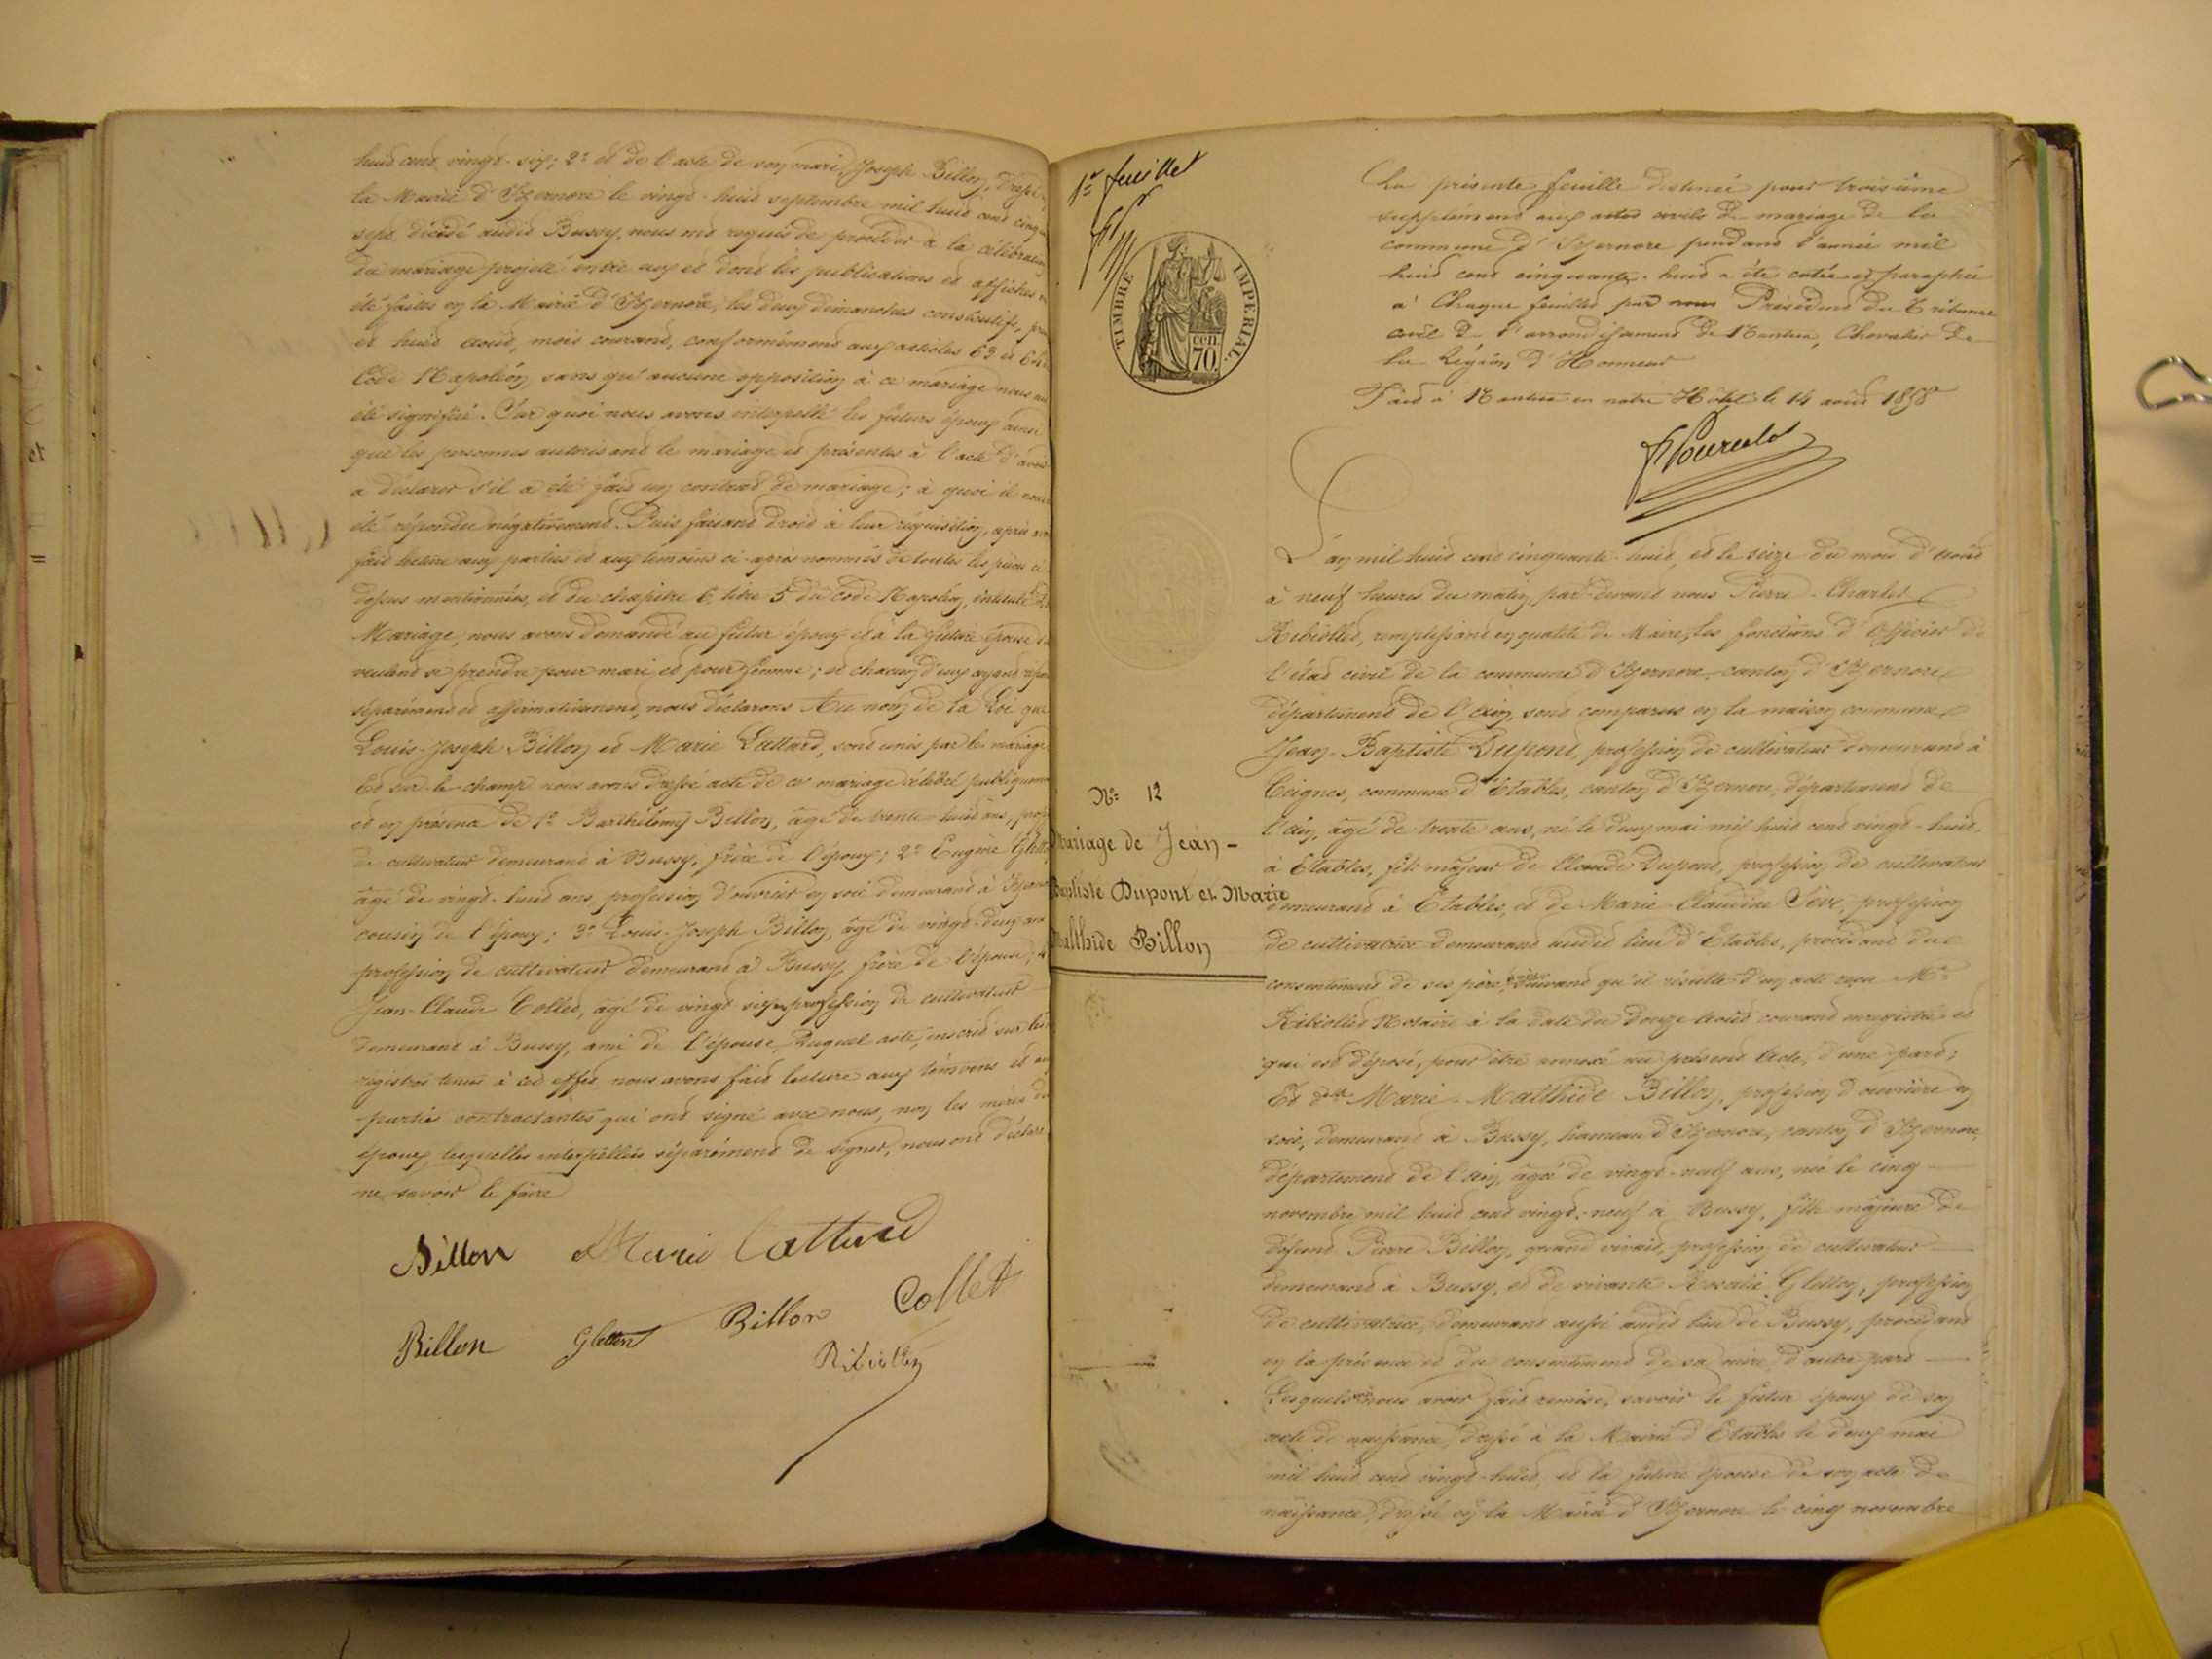 huit cent vingt-six; 2° et de l'acte de son mari, Joseph Billon, dressé
la Mairie d'Izernore le vingt-huit septembre mil huit cent cinqu
sept, décédé audit Bussy, nous ont requis de procéder à la célébration
du mariage projeté entre eux et dont les publications et affiches
été faites en la Mairie d'Izernore, les deux dimanches consécutifs,
et huit août, mois courant, conformément aux articles 63 et 64
Code Napoléon, sans qu'aucune opposition à ce mariage nous
été signifiée. Sur quoi nous avons interpellé les futurs époux ainsi
que les personnes autorisant le mariage et présentes à l'acte d'avoir
a déclarer s'il a été fait un contrat de mariage; à quoi il nous
été répondu négativement. Puis faisant droit à leur réquisition, après
fait lecture aux parties et aux témoins ci-après nommés de toutes les pièces ci
dessus mentionnées, et du chapitre 6, titre 5 du code Napoléon, intitulé
Mariage, nous avons demandé au futur époux et à la future épouse
veulent se prendre pour mari et pour femme; et chacun d'eux ayant répon
séparément et affirmativement, nous déclarons Au nom de la Loi que
Louis-Joseph Billon et Marie Lattard, sont unis par le mariage
Et sur-le-champ nous avons dressé acte de ce mariage célébré publiquement
et en présence de 1° Barthélemy Billon, âgé de trente-huit ans, prof
de cultivateur demeurant à Bussy, frère de l'époux; 2° Eugène Glett
âgé de vingt-huit ans, profession d'ouvrier en soie demeurant à Izerno
cousin de l'époux; 3° Louis-Joseph Billon, âgé de vingt-deux ans
profession de cultivateur demeurant à Bussy, frère de l'épouse;
Jean-Claude Collet, âgé de vingt-six, profession de cultivateur
demeurant à Bussy, ami de l'épouse, Duquel acte, inscrit sur les
registres tenus à cet effet, nous avons fait lecture aux témoins et aux
parties contractantes qui ont signé avec nous, non les mères des
époux, lesquelles interpellées séparément de signer, nous ont déclaré
ne savoir le faire
Billon Marie Lattard
Billon Gletton Billon Collet
Ribiollet
1er feuillet
TIMBRE IMPÉRIAL.
cen. 70.
La présente feuille destinée pour troisième
supplément aux actes civils de mariage de la
commune d'Izernore pendant l'année mil
huit cent cinquante-huit a été cotée et paraphée
à Chaque feuillet par nous Président du Tribunal
civil de l'arrondissement de Nantua, Chevalier de
la Légion d'Honneur
Fait à Nantua en notre Hôtel le 14 août 1858
L'an mil huit cent cinquante-huit, et le seize du mois d'août
à neuf heures du matin, par-devant nous Pierre-Charles
Ribiollet, remplissant en qualité de Maire, les fonctions d'Officier de
l'état civil de la commune d'Izernore canton d'Izernore
département de l'ain, sont comparus en la maison commune
Jean-Baptiste Dupont, profession de cultivateur demeurant à
Ceignes, commune d'Etables, canton d'Izernore, département de
l'ain, âgé de trente ans, né le deux mai mil huit cent vingt-huit,
à Etables, fils majeur de Claude Dupont, profession de cultivateur
demeurant à Etables, et de Marie-Claudine Sève, profession
de cultivatrice demeurant audit lieu d'Etables, procédant du
consentement de ses père & mère suivant qu'il résulte d'un acte reçu Me
Ribiollet Notaire à la date du douze août courant enregistré et
qui est déposé, pour être annexé au présent Acte, d'une part;
Et dlle Marie-Malthide Billon, profession d'ouvrière en
soie, demeurant à Bussy, hameau d'Izernore, canton d'Izernore,
département de l'ain, âgée de vingt-neuf ans, née le cinq
novembre mil huit cent vingt-neuf à Bussy, fille majeure de
défunt Pierre Billon, quand vivait, profession de cultivateur
demeurant à Bussy, et de vivante Rosalie Gletton, profession
de cultivatrice, demeurant aussi audit lieu de Bussy, procédant
en la présence et du consentement de sa mère, d'autre part
Lesquels nous avoir fait remise, savoir le futur époux de son
acte de naissance, dressé à la Mairie d'Etables le deux mai
mil huit cent vingt-huit, et la future épouse de son acte de
naissance, dressé en la Mairie d'Izernore le cinq novembre
N° 12
Mariage de Jean-
Baptiste Dupont et Marie
Malthide Billon